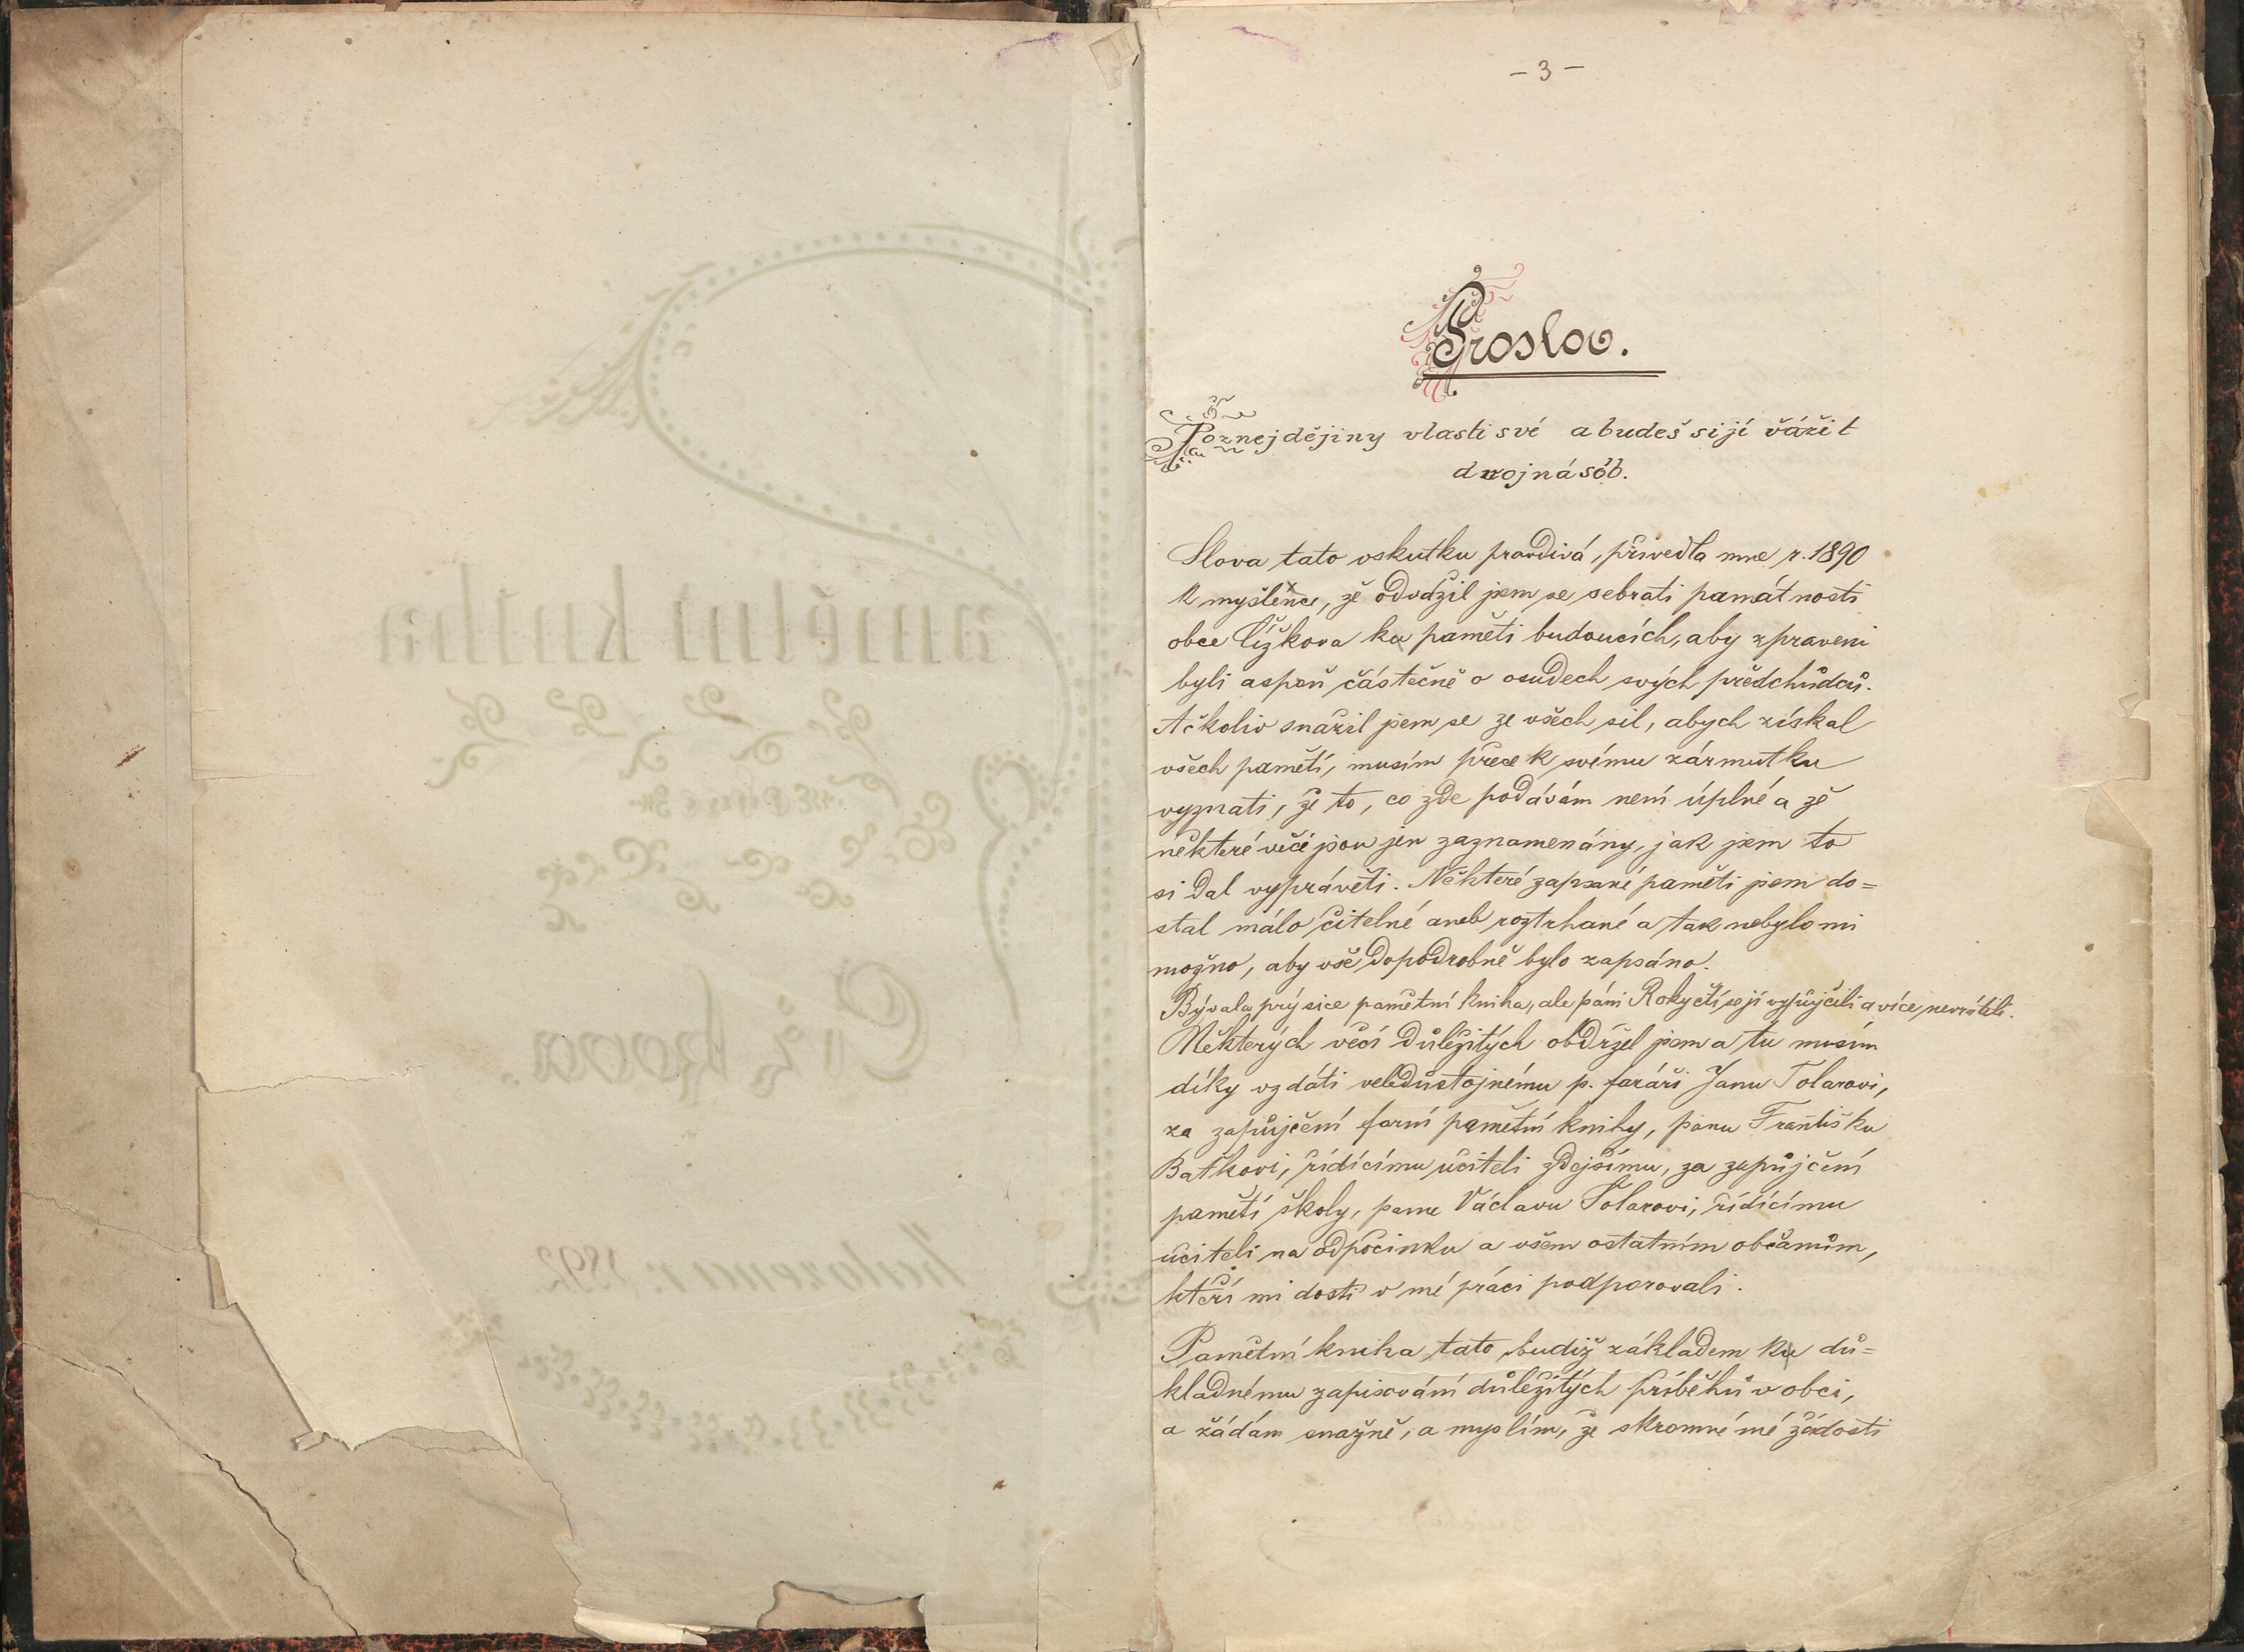 - 3 -
Proslov.
Poznej dějiny vlasti své a budeš si jí vážit
dvojnásob.
Slova tato vskutku pravdivá, přivedla mne r. 1890
k myšlence, že odvážil jsem se sebrati památnosti
obce Čížkova ku paměti budoucích, aby zpraveni
byli aspoň částečně o osudech svých předchůdců.
Ačkoliv snažil jsem se ze všech sil, abych získal
všech pamětí, musím přece k svému zármutku
vyznati, že to, co zde podávám není úplné a že
některé věci jsou jen zaznamenány, jak jsem to
si dal vyprávěti. Některé zapsané paměti jsem do=
stal málo čitelné aneb roztrhané a tak nebylo mi
možno, aby vše dopodrobně bylo zapsáno.
Bývala prý sice pamětní kniha, ale páni Rokyčtí se jí vypůjčili a více nevrátili.
Některých věcí důležitých obdržel jsem a tu musím
díky vzdáti veledůstojnému p. faráři Janu Tolarovi,
za zapůjčení farní pamětní knihy, panu Františku
Baťkovi, řídícímu učiteli zdejšímu, za zapůjčení
pamětí školy, panu Václavu Tolarovi, řídícímu
učiteli na odpočinku a všem ostatním občanům,
kteří mi dosti v mé práci podporovali.
Pamětní kniha tato budiž základem ku dů=
kladnému zapisování důležitých příběhů v obci,
a žádám snažně, a myslím, že skromné mé žádosti